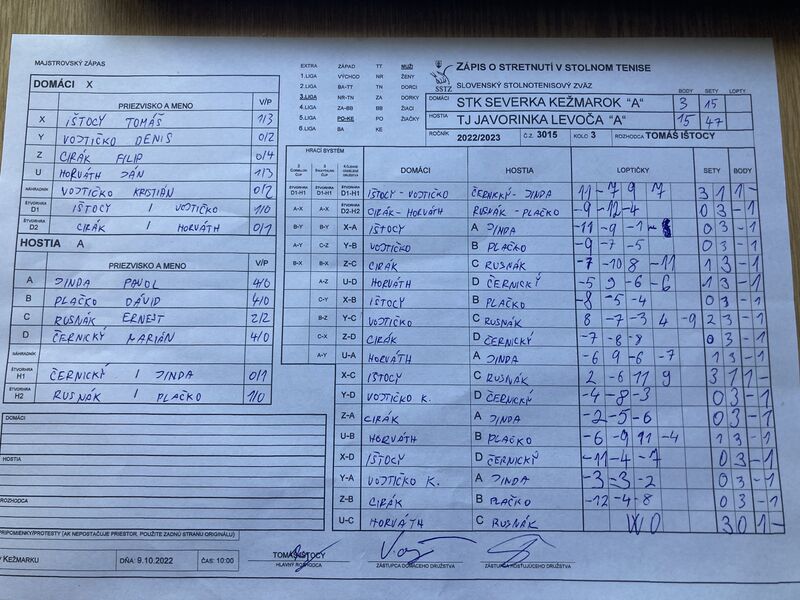 MAJSTROVSKÝ ZÁPAS
DOMÁCI X
PRIEZVISKO A MENO V/P
X IŠTOCY TOMÁŠ 1/3
Y VOJTIČKO DENIS 0/2
Z CIRÁK FILIP 0/4
U HORVÁTH JÁN 1/3
NÁHRADNÍK VOJTIČKO KRISTIÁN 0/2
ŠTVORHRA D1 IŠTOCY / VOJTIČKO 1/0
ŠTVORHRA D2 CIRÁK / HORVÁTH 0/1
HOSTIA A
PRIEZVISKO A MENO V/P
A JINDA PAVOL 4/0
B PLAČKO DÁVID 4/0
C RUSNÁK ERNEST 2/2
D ČERNICKÝ MARIÁN 4/0
NÁHRADNÍK
ŠTVORHRA H1 ČERNICKÝ / JINDA 0/1
ŠTVORHRA H2 RUSNÁK / PLAČKO 1/0
DOMÁCI
HOSTIA
ROZHODCA
PRIPOMIENKY/PROTESTY (AK NEPOSTAČUJE PRIESTOR, POUŽITE ZADNÚ STRANU ORIGINÁLU)
KEŽMARKU DŇA: 9.10.2022 ČAS: 10:00
EXTRA ZÁPAD TT MUŽI
1.LIGA VÝCHOD NR ŽENY
2.LIGA BA-TT TN DORCI
3.LIGA NR-TN ZA DORKY
4.LIGA ZA-BB BB ŽIACI
5.LIGA PO-KE PO ŽIAČKY
6.LIGA BA KE
SSTZ
ZÁPIS O STRETNUTÍ V STOLNOM TENISE
SLOVENSKÝ STOLNOTENISOVÝ ZVÄZ
BODY SETY LOPTY
DOMÁCI STK SEVERKA KEŽMAROK "A" 3 15
HOSTIA TJ JAVORINKA LEVOČA "A" 15 47
ROČNÍK 2022/2023 Č.Z. 3015 KOLO 3 ROZHODCA TOMÁŠ IŠTOCY
HRACÍ SYSTÉM
DOMÁCI HOSTIA LOPTIČKY SETY BODY
ŠTVORHRA D1-H1 ŠTVORHRA D1-H1 ŠTVORHRA D1-H1 IŠTOCY - VOJTIČKO ČERNICKÝ - JINDA 11 -7 9 7 3 1 1 -
A-X A-X ŠTVORHRA D2-H2 CIRÁK - HORVÁTH RUSNÁK - PLAČKO -9 -12 -4 0 3 - 1
B-Y B-Y X-A IŠTOCY A JINDA -11 -9 -1 0 3 - 1
A-Y C-Z Y-B VOJTIČKO B PLAČKO -9 -7 -5 0 3 - 1
B-X B-X Z-C CIRÁK C RUSNÁK -7 -10 8 -11 1 3 - 1
A-Z U-D HORVÁTH D ČERNICKÝ -5 9 -6 -6 1 3 - 1
C-Y X-B IŠTOCY B PLAČKO -8 -5 -4 0 3 - 1
B-Z Y-C VOJTIČKO C RUSNÁK 8 -7 -3 4 -9 2 3 - 1
C-X Z-D CIRÁK D ČERNICKÝ -7 -8 -8 0 3 - 1
A-Y U-A HORVÁTH A JINDA -6 9 -6 -7 1 3 - 1
X-C IŠTOCY C RUSNÁK 2 -6 11 9 3 1 1 -
Y-D VOJTIČKO K. D ČERNICKÝ -4 -8 -3 0 3 - 1
Z-A CIRÁK A JINDA -2 -5 -6 0 3 - 1
U-B HORVÁTH B PLAČKO -6 -9 11 -4 1 3 - 1
X-D IŠTOCY D ČERNICKÝ -11 -4 -7 0 3 - 1
Y-A VOJTIČKO K. A JINDA -3 -3 -2 0 3 - 1
Z-B CIRÁK B PLAČKO -12 -4 -8 0 3 - 1
U-C HORVÁTH C RUSNÁK WO 3 0 1 -
TOMÁŠ IŠTOCY
HLAVNÝ ROZHODCA ZÁSTUPCA DOMÁCEHO DRUŽSTVA ZÁSTUPCA HOSŤUJÚCEHO DRUŽSTVA